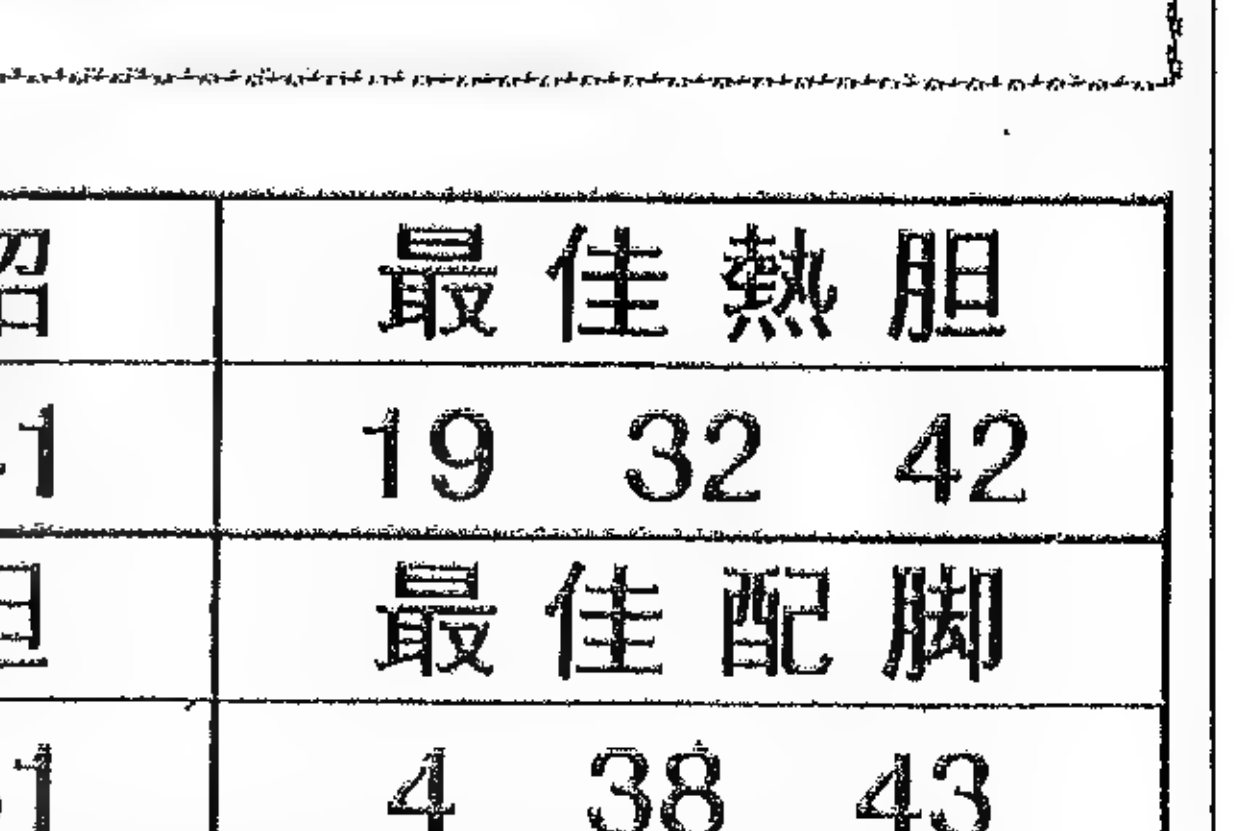 最佳熱胆
1 19 32 42
最佳配脚
1 4 38 43